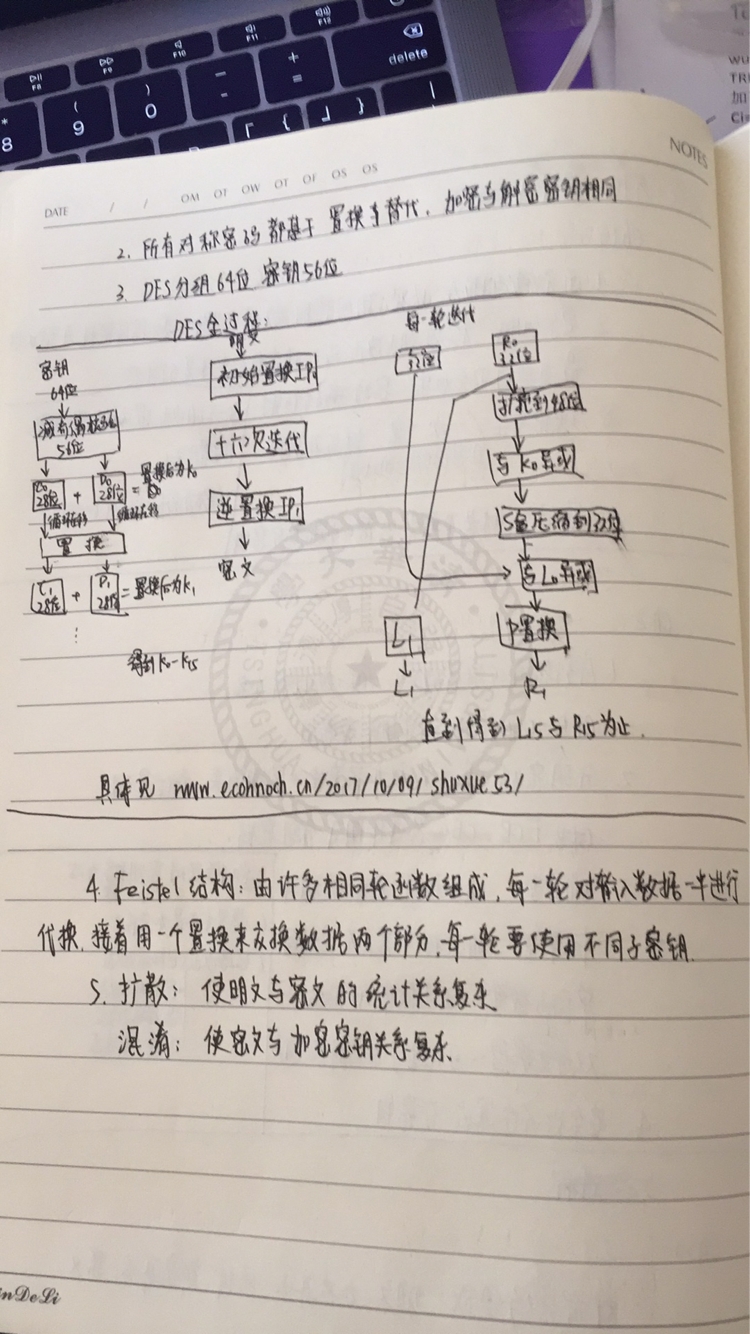 F8
F9
F10
F11
F12
delete
*
8
(
9
)
0
-
+
=
{
}
WU
TR
加
Ci
NOTES
DATE / / OM OT OW OT OF OS OS
2. 所有对称密码都基于置换与替代，加密与解密密钥相同
3. DES分组64位 密钥56位
DES全过程：
密钥
64位
56位
C0
28位
+
D0
28位
= 置换后为K0
循环左移
循环左移
置换
C1
28位
+
D1
28位
= 置换后为K1
⋮
得到K0-K15
明文
初始置换IP
十六次迭代
逆置换IP
密文
每一轮迭代
32位
R0
32位
扩展到48位
与K0异或
S盒压缩到32位
与L0异或
P置换
L1
L1
R1
直到得到L15与R15为止.
具体见 www.ecohnoch.cn/2017/10/09/shuxue53/
4. Feistel结构：由许多相同轮函数组成，每一轮对输入数据一半进行
代换，接着用一个置换来交换数据两个部分，每一轮要使用不同子密钥.
5. 扩散：使明文与密文的统计关系复杂
混淆：使密文与加密密钥关系复杂
inDeLi